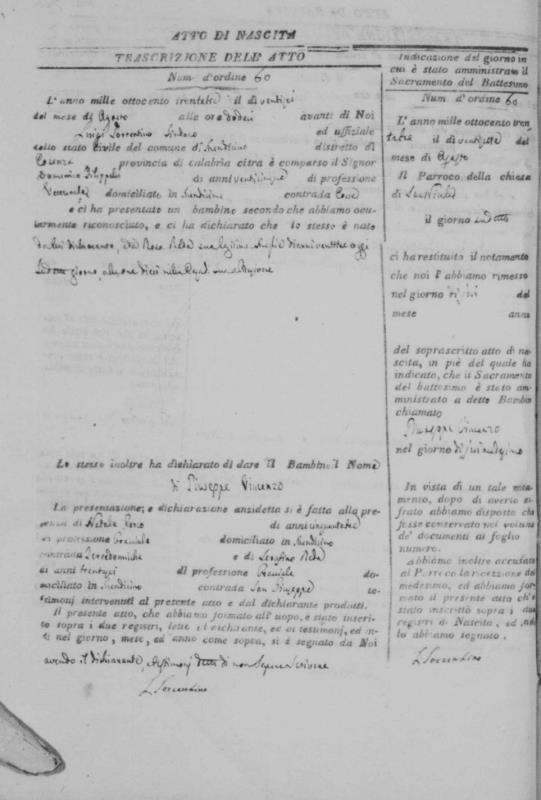 ATTO DI NASCITA
TRASCRIZIONE DELL' ATTO
Num. d'ordine 60
L'anno mille ottocento trentatre il di ventisei
del mese di Agosto alle ore dodeci avanti di Noi
Luigi Sorrentino Sindaco ed uffiziale
dello stato Civile del comune di Mendicino distretto di
Cosenza provincia di calabria citra è comparso il Signor
Domenico Filippelli di anni venticinque di professione
domiciliato in Mendicino contrada
e ci ha presentato un bambino secondo che abbiamo ocu-
larmente riconosciuto, e ci ha dichiarato che lo stesso è nato
da lui dichiarante, e da Rosa Reda sua legitima moglie di anni ventitre oggi
sudetto giorno, alle ore dieci nella Casa di sua abitazione
Lo stesso inoltre ha dichiarato di dare il Bambino il Nome
di Giuseppe Vincenzo
La presentazione, e dichiarazione anzidetta si è fatta alla pre-
senza di Natale di anni cinquantatre
di professione domiciliato in Mendicino
contrada e di Serafino Reda
di anni di professione do-
miciliato in Mendicino contrada San Giuseppe te-
stimonj intervenuti al presente atto e dal dichiarante prodotti.
Il presente atto, che abbiamo formato all' uopo, e stato inseri-
to sopra i due registri, letto al dichiarante, ed ai testimonj, ed in-
ti nel giorno, mese, ed anno come sopra, si è segnato da Noi
avendo il dichiarante, e testimonj detto di non sapere scrivere
L Sorrentino
Indicazione del giorno in
cui è stato amministrato il
Sacramento del Battesimo
Num. d'ordine 60
L'anno mille ottocento tren
tatre il di ventisette del
mese di Agosto
Il Parroco della chiesa
di San Nicola
il giorno sudetto
ci ha restituito il notamento
che noi l'abbiamo rimesso
nel giorno del
mese anno
del soprascritto atto di na-
scita, in piè del quale ha
indicato, che il Sacramento
del battesimo è stato am-
ministrato a detto Bambino
chiamato
Giuseppe Vincenzo
nel giorno
In vista di un tale nota-
mento, dopo di averlo si-
frato abbiamo disposto che
fosse conservato nel volume
de' documenti al foglio
numero.
abbiamo inoltre accusato
al Parroco la recezione del
medesimo, ed abbiamo for-
mato il presente atto ch'è
stato inscritto sopra i due
registri di Nascita, ed indi
lo abbiamo segnato.
L Sorrentino